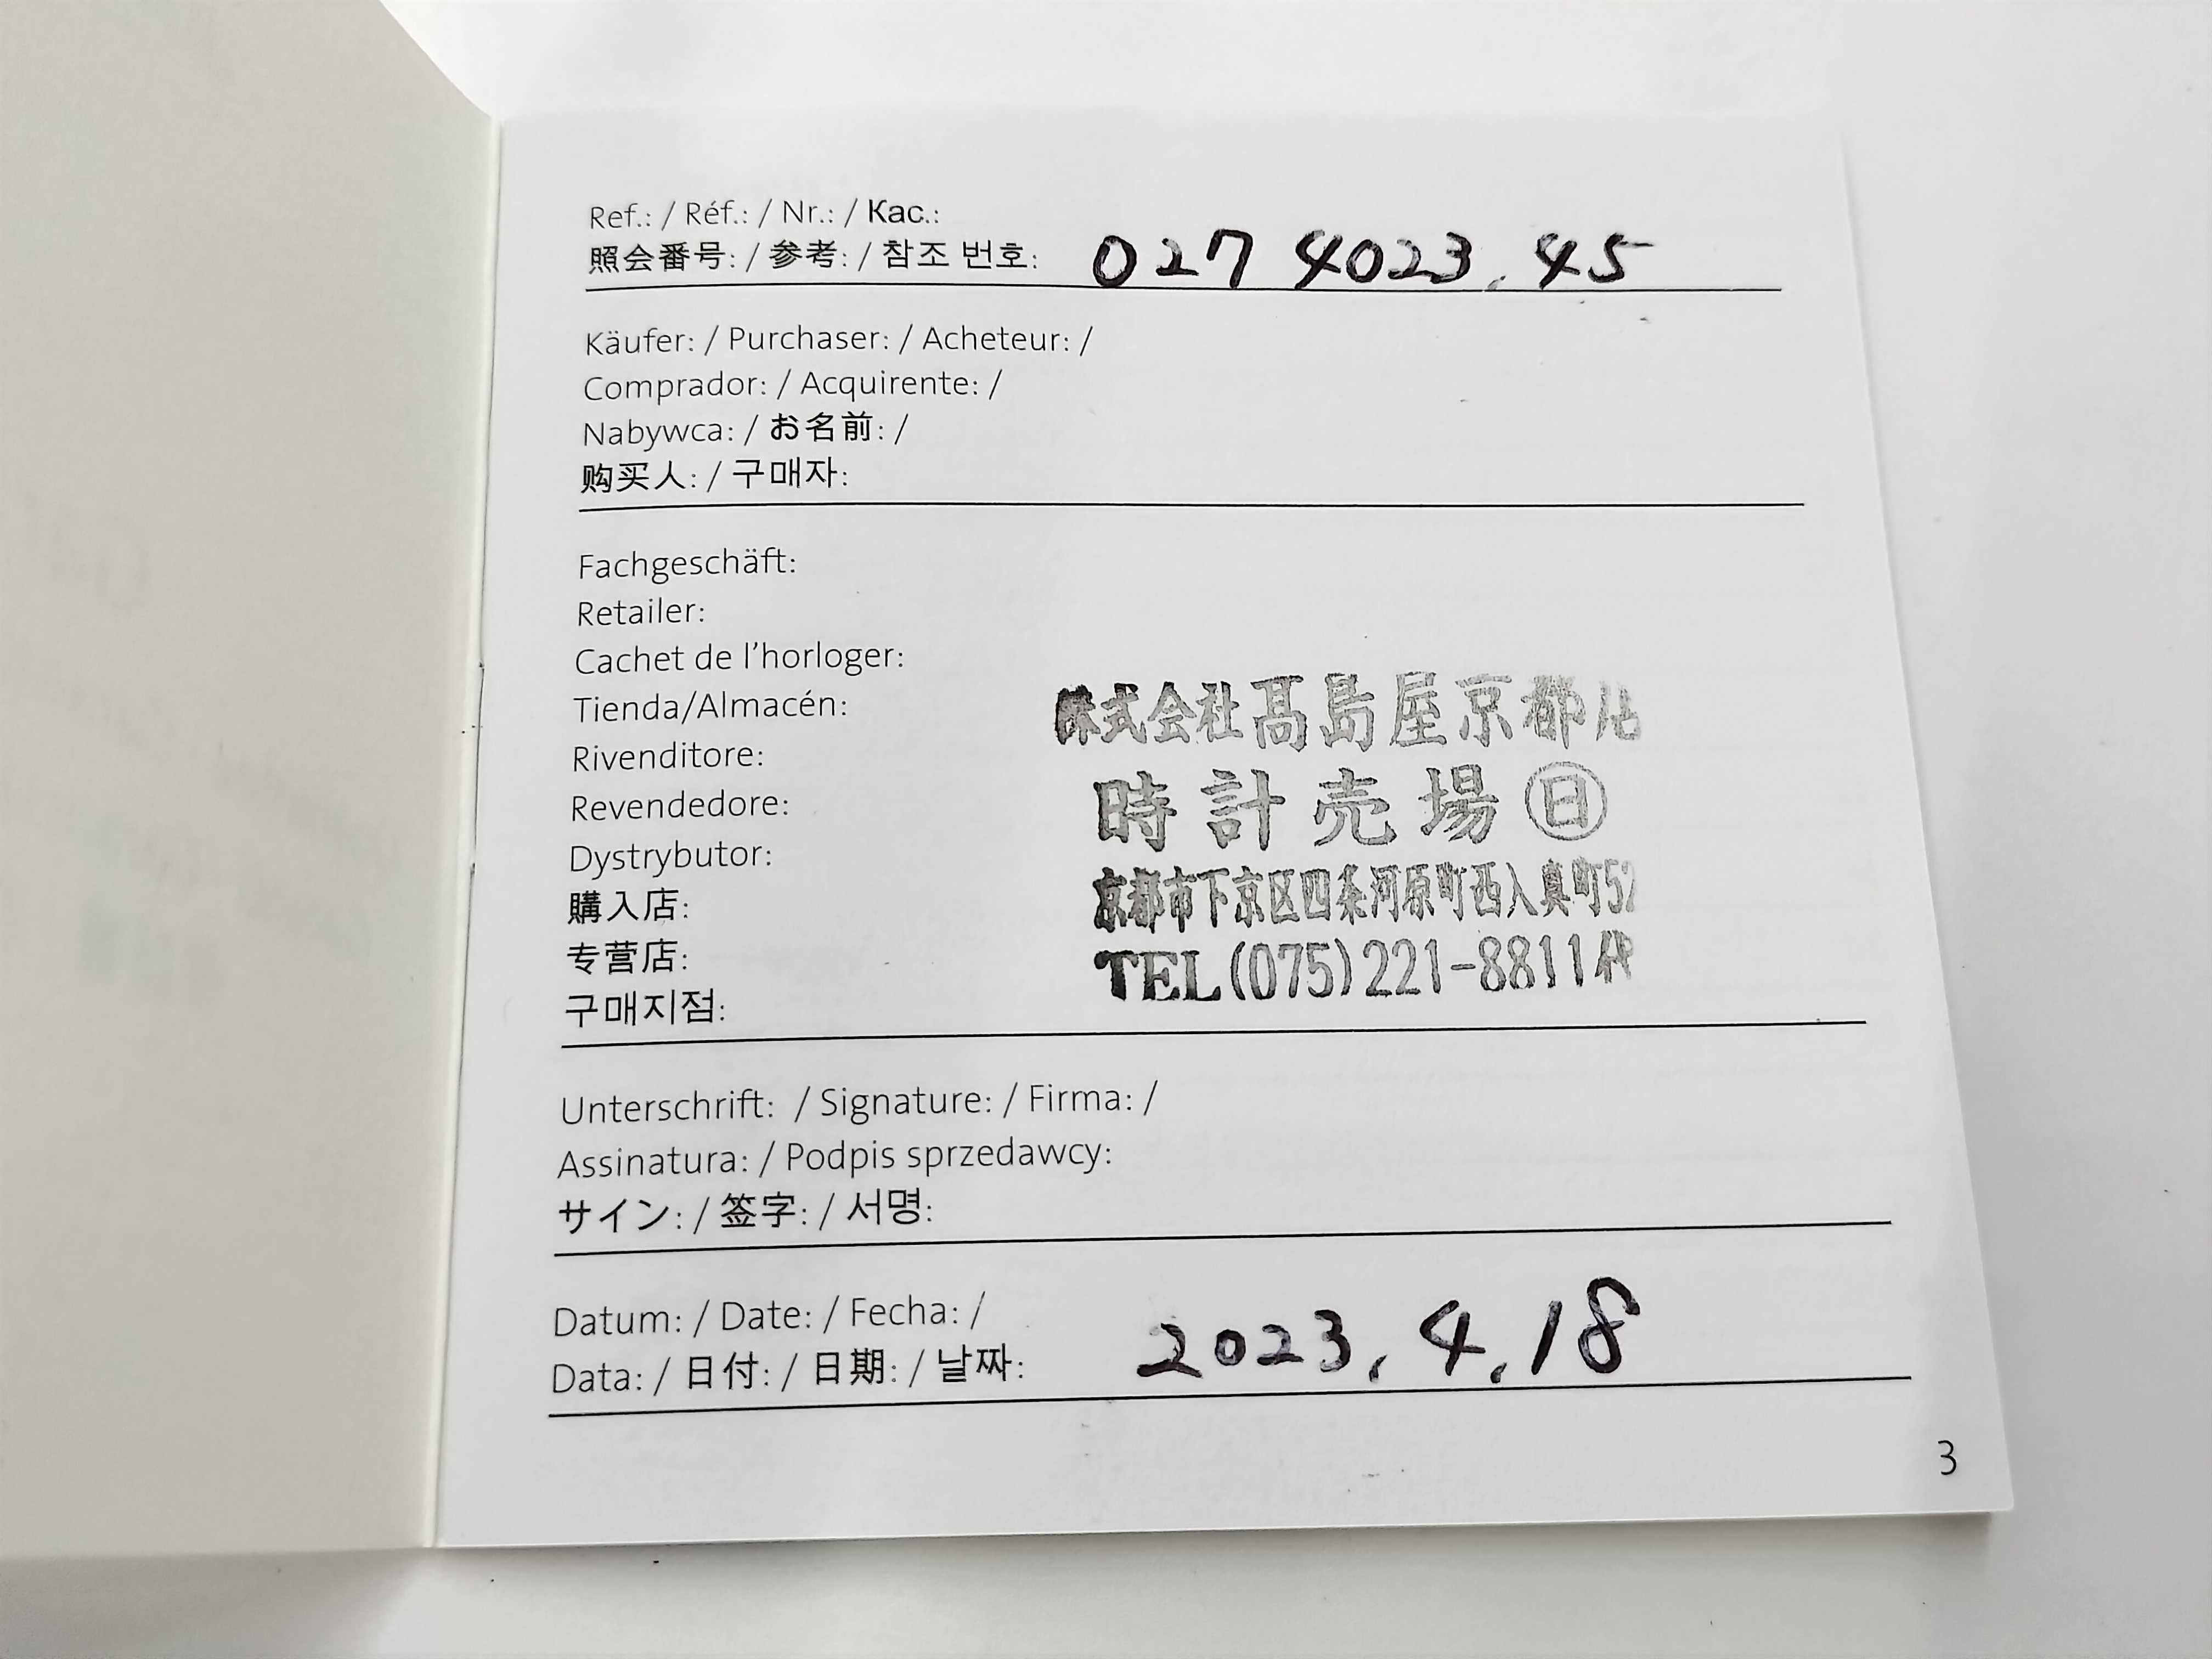 Ref.: / Réf.: / Nr.: / Kac.:
照会番号: / 参考: / 참조 번호: 027 4023.45
Käufer: / Purchaser: / Acheteur: /
Comprador: / Acquirente: /
Nabywca: / お名前: /
购买人: / 구매자:
Fachgeschäft:
Retailer:
Cachet de l’horloger:
Tienda/Almacén:
Rivenditore:
Revendedore:
Dystrybutor:
購入店:
专营店:
구매지점:
株式会社髙島屋京都店
時計売場 ㊐
京都市下京区四条河原町西入真町52
TEL(075)221-8811代
Unterschrift: / Signature: / Firma: /
Assinatura: / Podpis sprzedawcy:
サイン: / 签字: / 서명:
Datum: / Date: / Fecha: /
Data: / 日付: / 日期: / 날짜: 2023.4.18
3